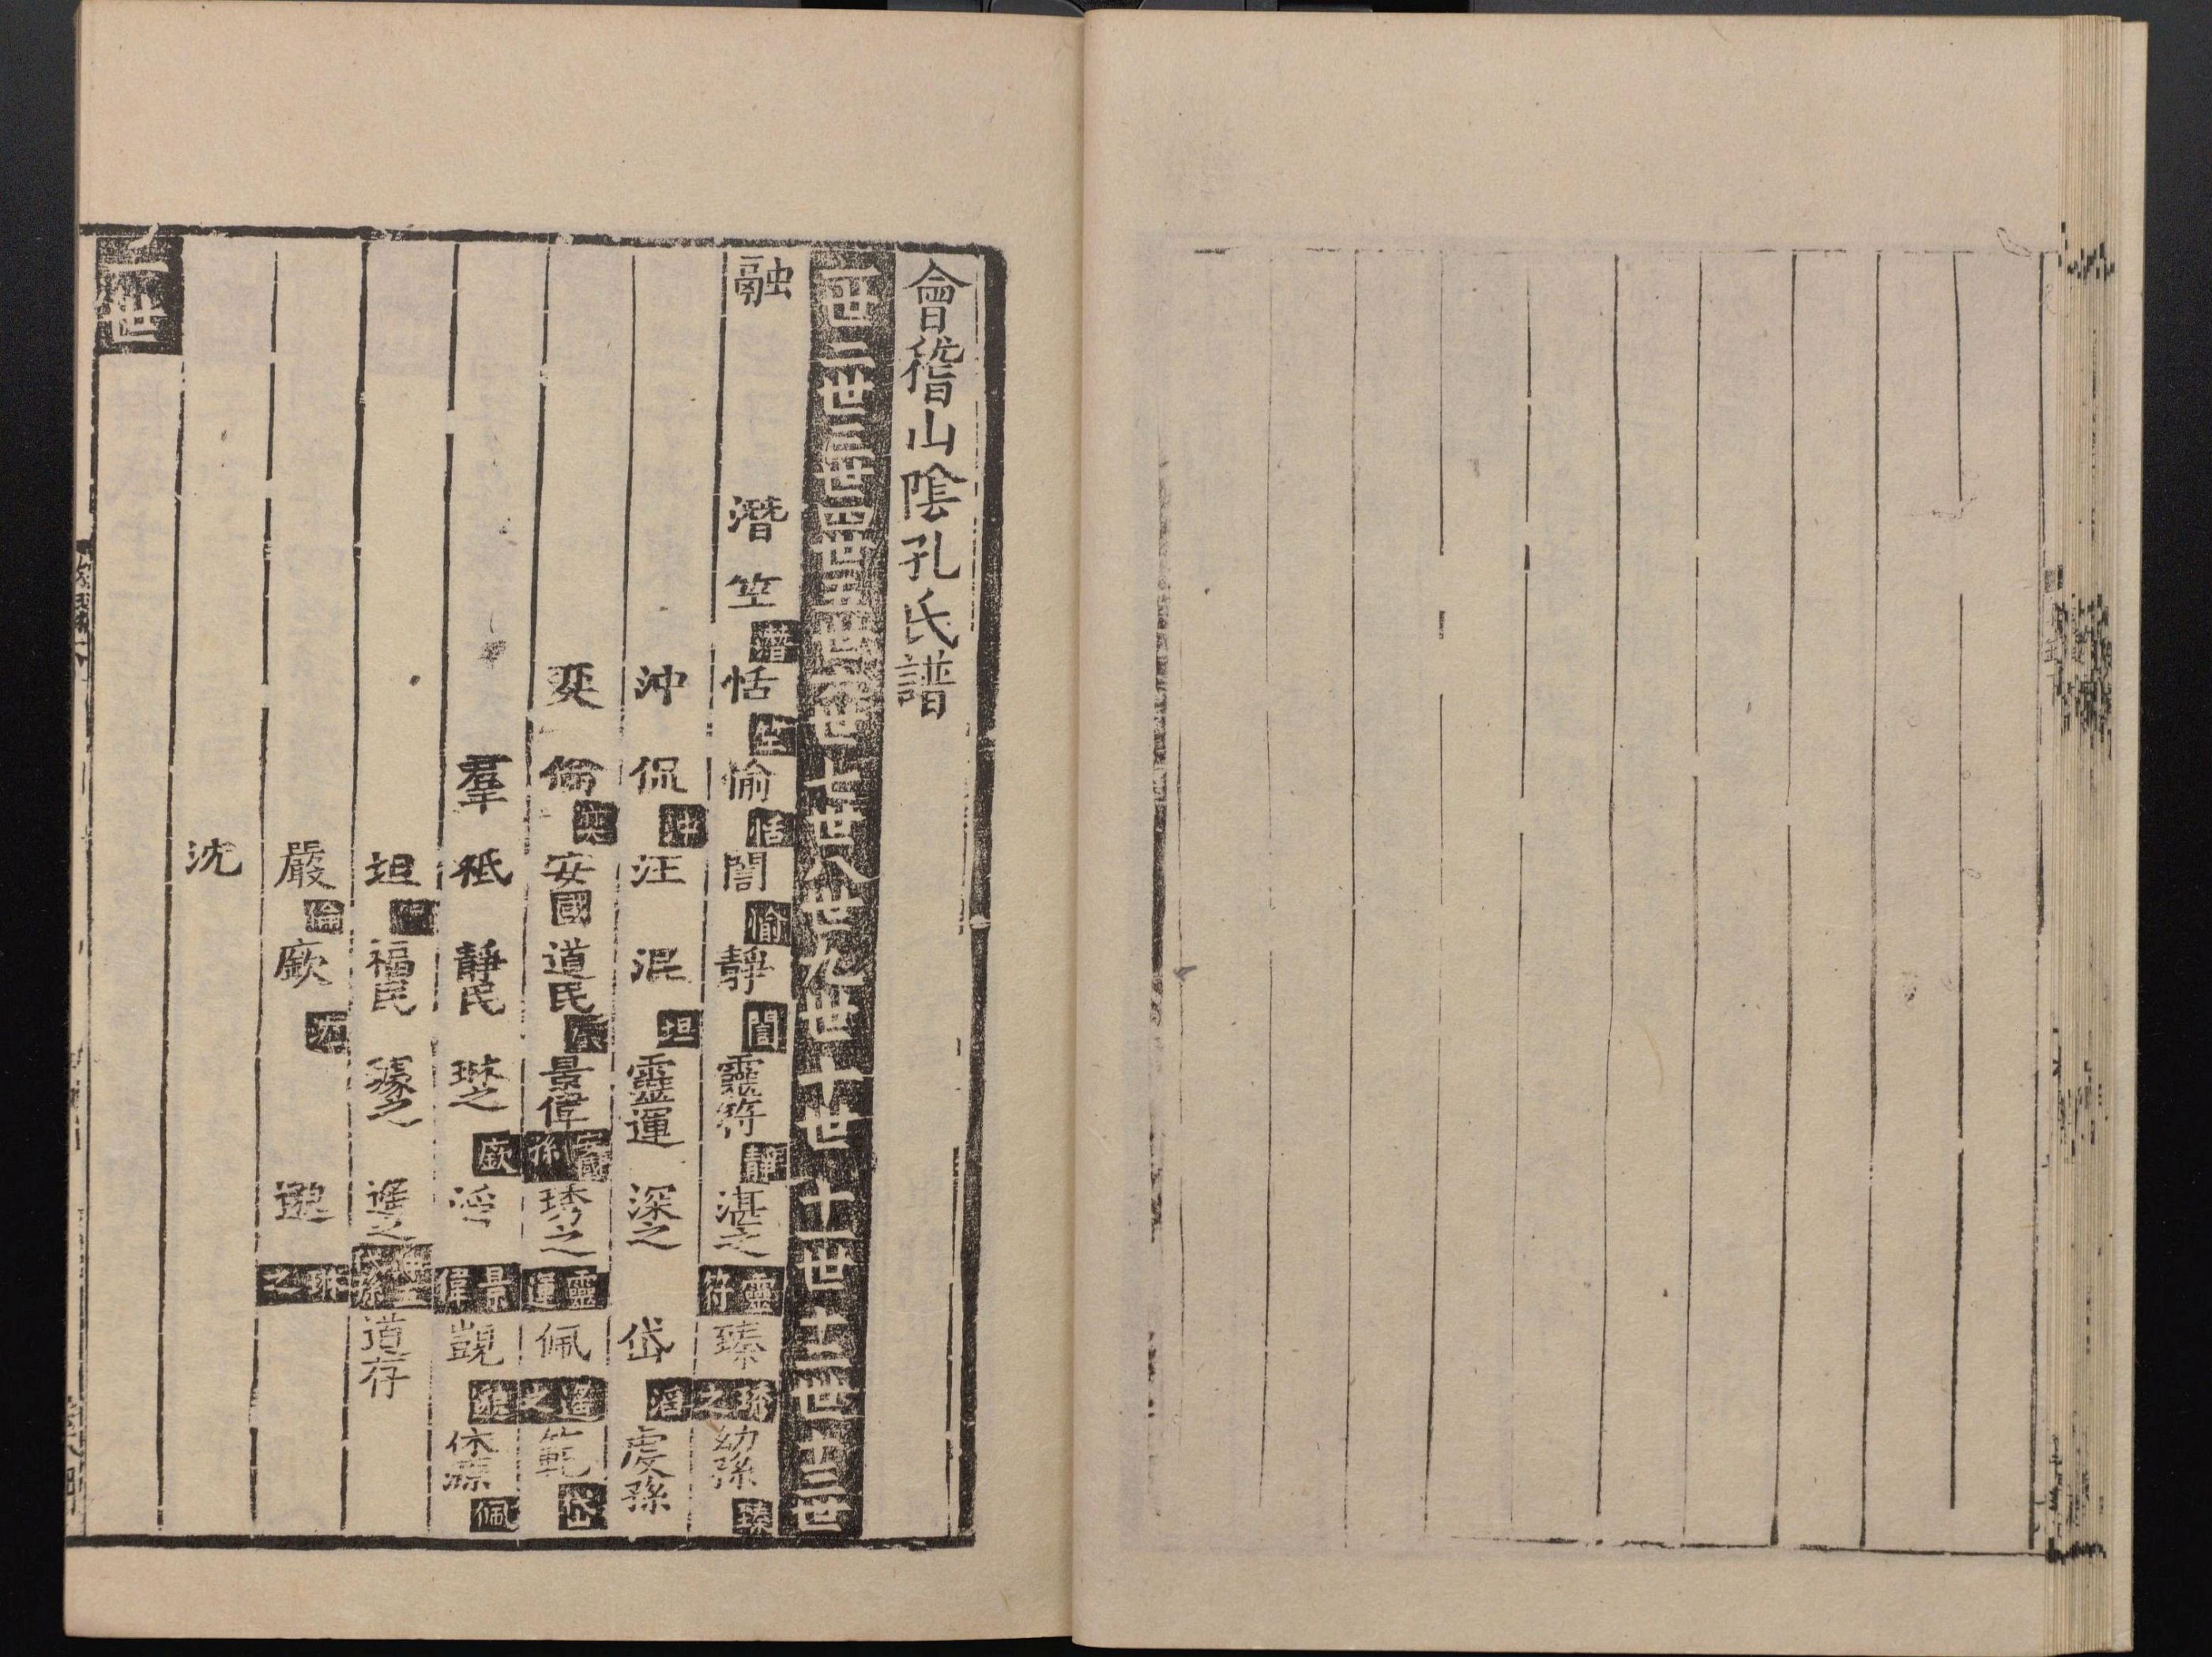 會稽山陰孔氏譜
一世二世三世四世五世六世七世八世九世十世十一世十二世十三世
融 潛 笁 潛 恬 笁 愉 恬 誾 愉 靜 誾 靈符 靜 湛之 靈符 臻 琇之 幼孫 臻
沖 侃 沖 汪 混 坦 靈運 深之 岱 滔 虔孫
奕 倫 奕 安國 道民 景偉 安國孫 琇之 靈運 佩 遙之 範 岱
羣 祗 靜民 琳之 廞 滔 景偉 覬 邈 休源 佩
坦 侃 福民 璩之 遙之 道存
嚴 倫 廞 沈 邈 琳之
沈
一世